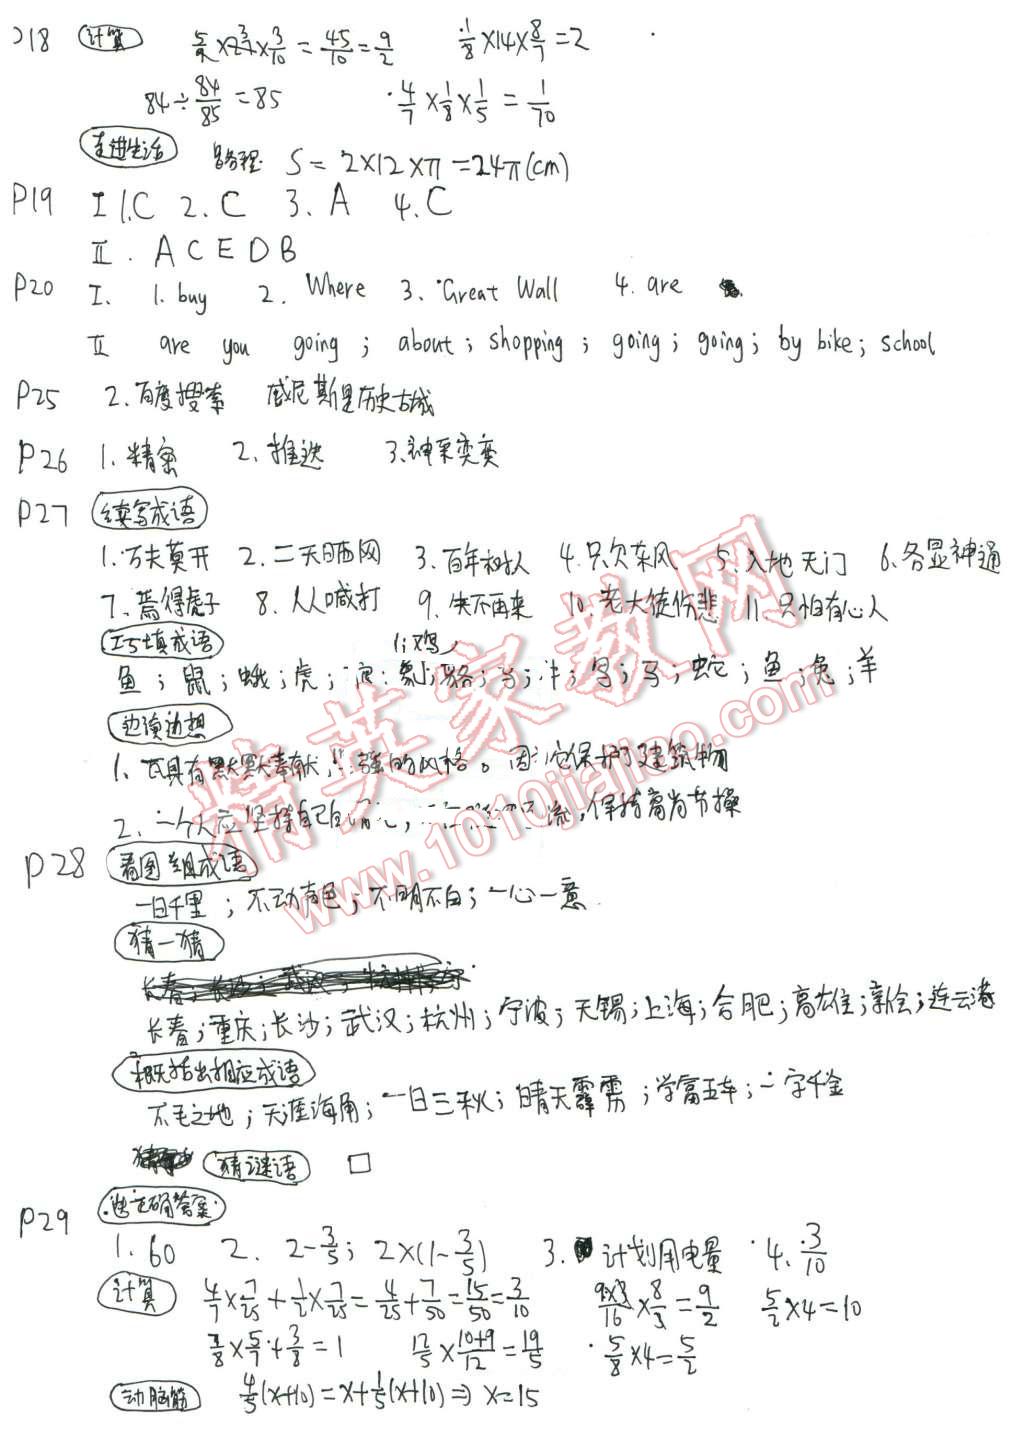 P18 计算 5/2×27×3/10=45/10=9/2 1/8×14×8/7=2
84÷84/85=85 4/7×1/8×1/5=1/70
走进生活 路程: S=2×12×π=24π(cm)
P19 I 1.C 2.C 3.A 4.C
II. A C E D B
P20 I. 1. buy 2. Where 3. Great Wall 4. are
II are you going; about; shopping; going; going; by bike; school
P25 2.百度搜索 威尼斯是历史古城
P26 1.精密 2.推迟 3.神采奕奕
P27 续写成语
1.万夫莫开 2.二天晒网 3.百年树人 4.只欠东风 5.入地无门 6.各显神通
7.焉得虎子 8.人人喊打 9.失不再来 10.老大徒伤悲 11.只怕有心人
巧填成语 鸡
鱼;鼠;蛾;虎;象;骆;马;蛇;鱼;兔;羊
边读边想
1.瓦具有默默奉献的风格。因它保护了建筑物
2.一个人应坚持自己流,保持高尚节操
P28 看图组成语
一日千里;不动声色;不明不白;一心一意
猜一猜
长春;重庆;长沙;武汉;杭州;宁波;无锡;上海;合肥;高雄;新会;连云港
概括出相应成语
不毛之地;天涯海角;一日三秋;晴天霹雳;学富五车;一字千金
猜谜语 口
P29 选正确答案
1.60 2. 2-3/5; 2×(1-3/5) 3.计划用电量 4. 3/10
计算 4/7×7/25+1/2×7/25=4/25+7/50=15/50=3/10 9×3/16×8/3=9/2 5/2×4=10
7/8×5/7+3/8=1 12/5×10+9/12=19/5 5/8×4=5/2
动脑筋 4/5(x+10)=x+1/5(x+10)⇒x=15
精英家教网
www.1010jiajiao.com